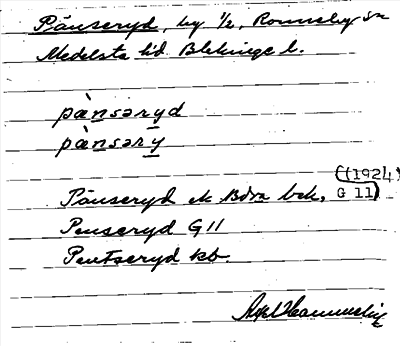 Pänseryd, by 1/2, Ronneby sn
Medelsta hd Blekinge l.
pæ̀nsəryd
pæ̀nsəry
Pänseryd ek Bdra bek, ((1924)
G 11)
Penseryd G11
Pentseryd kb.
Axel